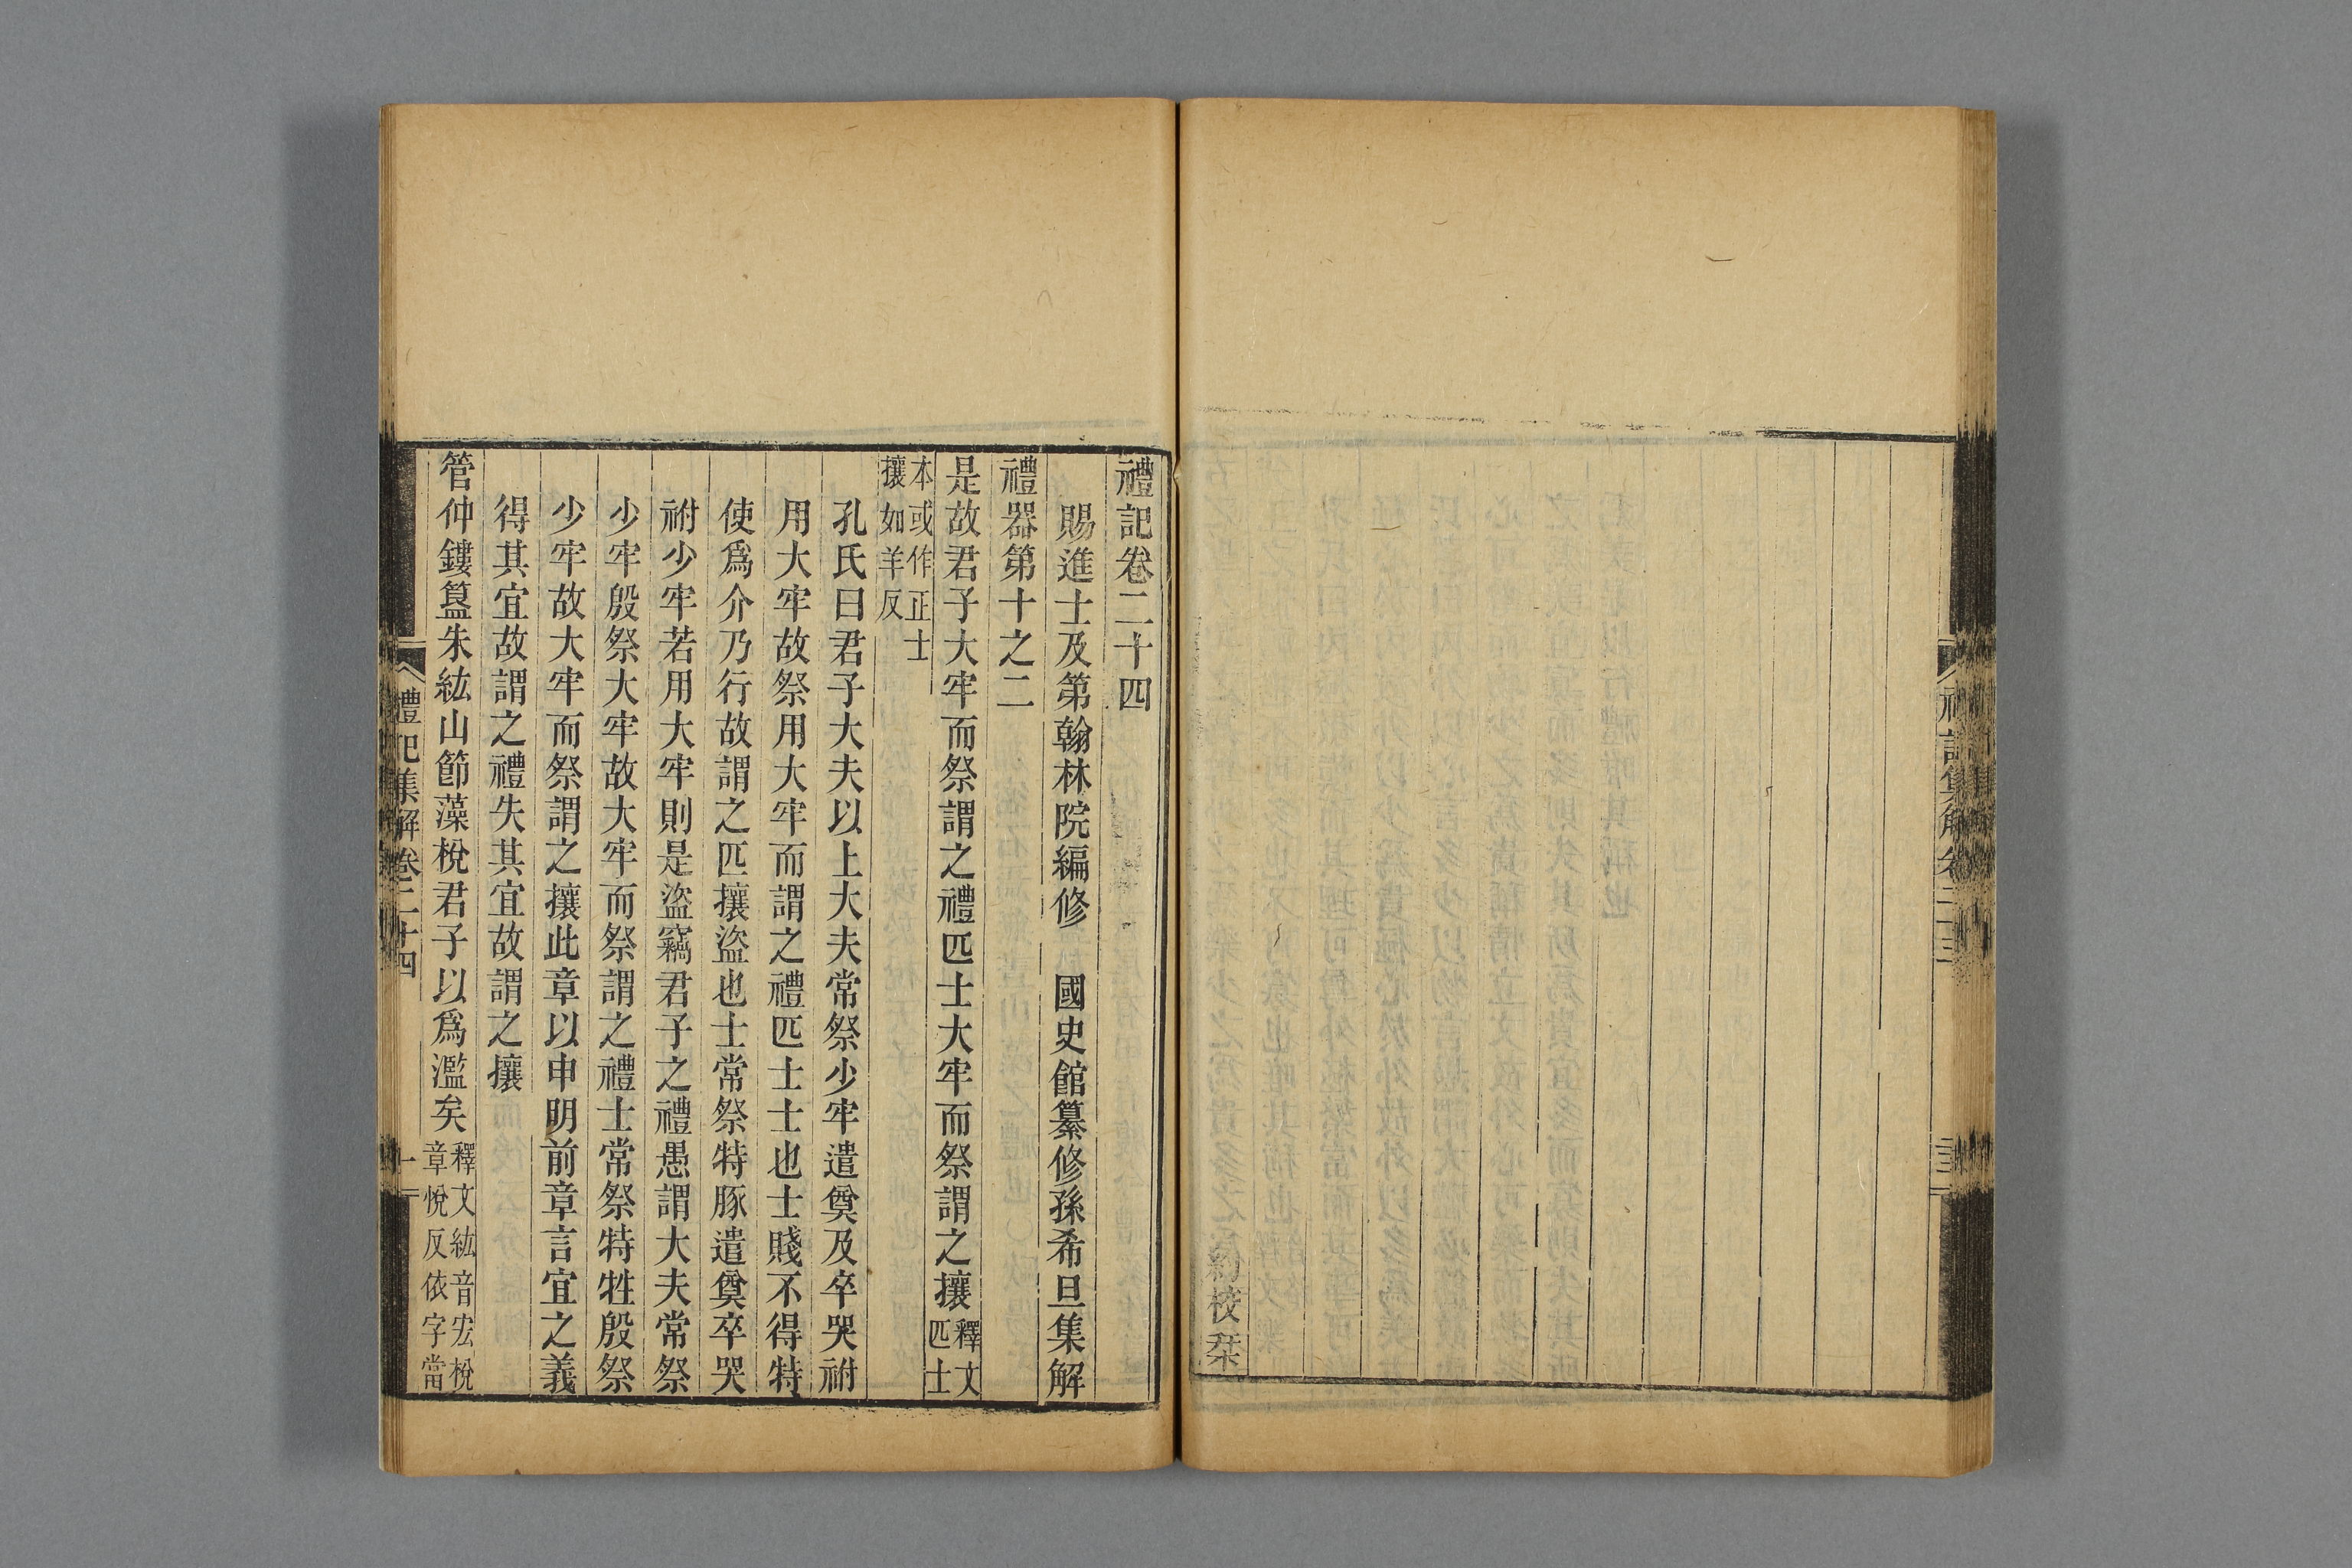 校栞
禮記卷二十四
賜進士及第翰林院編修 國史館纂修孫希旦集解
禮器第十之二
是故君子大牢而祭謂之禮匹士大牢而祭謂之攘釋文匹士
本或作正士攘如羊反
孔氏曰君子大夫以上大夫常祭少牢遣奠及卒哭祔
用大牢故祭用大牢而謂之禮匹士士也士賤不得特
使爲介乃行故謂之匹攘盜也士常祭特豚遣奠卒哭
祔少牢若用大牢則是盜竊君子之禮愚謂大夫常祭
少牢殷祭大牢故大牢而祭謂之禮士常祭特牲殷祭
少牢故大牢而祭謂之攘此章以申明前章言宜之義
得其宜故謂之禮失其宜故謂之攘
管仲鏤簋朱紘山節藻梲君子以爲濫矣釋文紘音宏梲章悅反依字當
禮記集解卷二十四
一